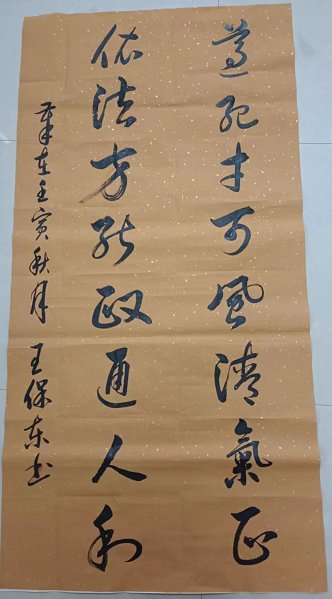 遵纪才可风清气正
依法方能政通人和
岁在壬寅秋月 王保东书